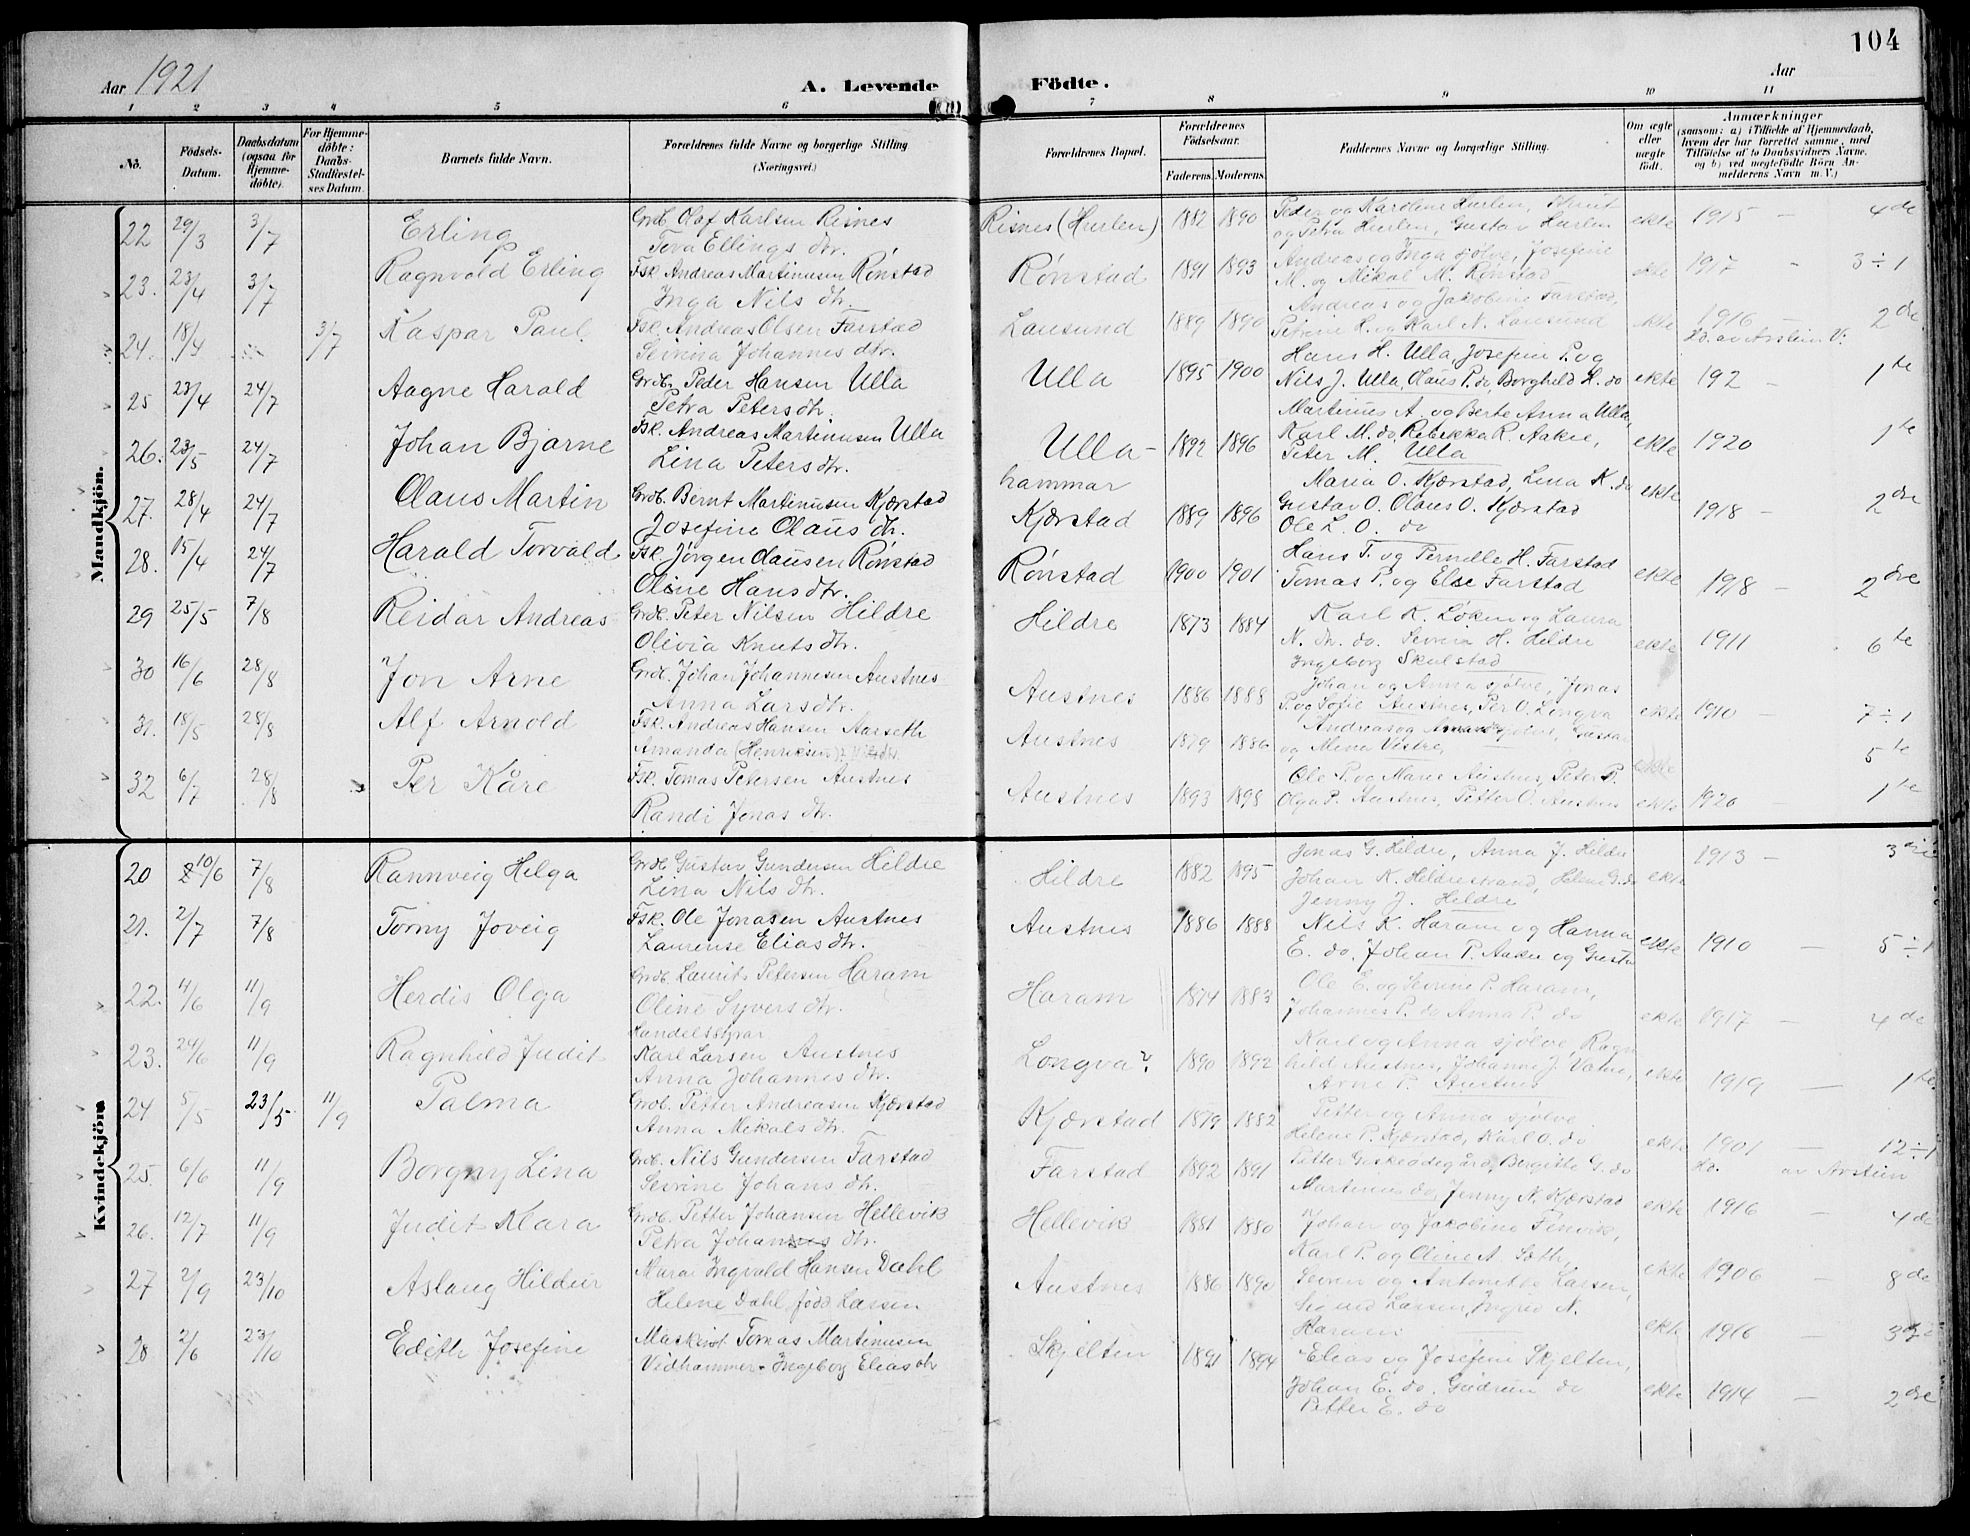 104
Aar 1921
A. Levende
Födte.
Aar
1 2 3 4 5 6 7 8 9 10 11
No.
Födsels-
Datum.
Daabsdatum
(ogsaa for
Hjemme-
döbte).
For Hjemme-
döbte:
Daabs-
Stadfæstel-
ses Datum.
Barnets fulde Navn.
Forældrenes fulde Navne og borgerlige Stilling
(Næringsvei.)
Forældrenes Bopæl.
Forældrenes
Födselsaar.
Faderens. Moderens.
Faddernes Navne og borgerlige Stilling.
Om ægte
eller
uægte
födt.
Anmærkninger
(saasom: a) i Tilfælde af Hjemmedaab,
hvem der har forrettet samme, med
Tilföielse af to Daabsvidners Navne.
og b) ved uegtefödte Börn An-
melderens Navn m. V.)
Mandkjön.
22 29/3 3/7 Erling Grdb. Olaf Karlsen Risnes
Tova Ellings dtr.
Risnes (Hurlen) 1882 1890 Peder og Karoline Hurlen, Knut
og Petra Hurlen, Gustav Hurlen
ekte 1915 - 4de
23. 23/4 3/7 Ragnvald Erling Fsk. Andreas Martinusen Rønstad
Inga Nils dtr.
Rønstad 1891 1893 Andreas og Inga sjølve, Josefine
M. og Mikal M. Rønstad
ekte 1917 - 3÷1
24. 18/4 3/7 Kaspar Paul Fsk. Andreas Olsen Farstad
Sevrina Johannes dtr.
Lausund 1889 1890 Andreas og Jakobine Farstad,
Petrine H. og Karl N. Lausund
ekte 1916 - 2dre
Hd. av Arstein V.
25 23/4 24/7 Aagne Harald Grdb. Peder Hansen Ulla
Petra Peters dtr.
Ulla 1895 1900 Hans H. Ulla, Josefine P. og
Nils J. Ulla, Olaus P. do, Borghild H. do
ekte 192 - 1te
26. 23/5 24/7 Johan Bjarne Fsk. Andreas Martinusen Ulla
Lina Peters dtr.
Ulla-
hammar 1892 1896 Martinus A. og Berte Anna Ulla,
Karl M. do, Rebekka R. Aakre,
Peter M. Ulla
ekte 1920 1te
27. 28/4 24/7 Olaus Martin Grdb. Bernt Martinusen Kjærstad
Josefine Olaus dtr.
Kjærstad 1889 1896 Maria O. Kjærstad, Lina K. do
Gustav O. Olaus O. Kjærstad
Ole L. O. do
ekte 1918 - 2dre
28. 15/4 24/7 Harald Torvald Fsk. Jørgen Clausen Rønstad
Oline Hans dtr.
Rønstad 1900 1901 Hans T. og Pernille H. Farstad
Tomas P. og Else Farstad
ekte 1918 - 2dre
29 25/5 7/8 Reidar Andreas Grdb. Peter Nilsen Hildre
Olivia Knuts dtr.
Hildre 1873 1884 Karl K. Løken og Laura
N. dtr. do. Sevrin H. Hildre
Ingeborg Skulstad
ekte 1911 6te
30 16/6 28/8 Jon Arne Grdb. Johan Johannesen Austnes
Anna Lars dtr.
Austnes 1886 1888 Johan og Anna sjølve, Jonas
P. og Sofie Austnes, Per O. Longva
ekte 1910 - 7÷1
31. 18/5 28/8 Alf Arnold Fsk. Andreas Hansen Aarseth
Amanda (Henriksen)
Austnes 1879 1886 Andreas og Amanda sjølve, Gustav
og Mena Vestre,
ekte 5te
32 6/7 28/8 Per Kåre Fsk. Tomas Petersen Austnes
Randi Jonas dtr.
Austnes 1893 1898 Ole P. og Marie Austnes, Peter P.
Olga P. Austnes, Petter O. Austnes
ekte 1920 - 1te
Kvindekjön
20 10/6 7/8 Rannveig Helga Grdb. Gustav Gundersen Hildre
Lina Nils dtr.
Hildre 1882 1895 Jonas G. Hildre, Anna J. Hildre
Johan K. Hildrestrand, Helene G. do
Jenny J. Hildre
ekte 1913 - 3dje
21. 2/7 7/8 Torny Joveig Fsk. Ole Jonasen Austnes
Laurense Elias dtr.
Austnes 1886 1888 Nils K. Haram og Hanna
E. do, Johan P. Aakre og Gusta
ekte 1910 - 5÷1
22. 4/6 11/9 Herdis Olga Grdb. Laurits Petersen Haram
Oline Syvers dtr.
Haram 1874 1883 Ole E. og Sevrine P. Haram,
Johannes P. do Anna P. do
ekte 1917 - 4de
23. 24/6 11/9 Ragnhild Judit Handelsstyrar
Karl Larsen Austnes
Anna Johannes dtr.
Longva? 1890 1892 Karl og Anna sjølve, Ragn
hild Austnes, Johanne J. Vatne,
Arne P. Austnes
ekte 1919 - 1te
24 5/5 23/5 11/9 Palma Grdb. Petter Andreasen Kjærstad
Anna Mekals dtr.
Kjærstad 1879 1882 Petter og Anna sjølve
Helene P. Kjærstad, Karl O. do
ekte 1901 - 12÷1
Hd. av Arstein
25. 6/6 11/9 Borgny Lina Grdb. Nils Gundersen Farstad
Sevrine Johans dtr.
Farstad 1892 1891 Petter Giskeødegård, Bergitte G. do
Martinus do, Jenny N. Kjærstad
ekte 1916 - 4de
26. 12/7 11/9 Judit Klara Grdb. Petter Johansen Hellevik
Petra Johannes dtr.
Hellevik 1881 1880 Johan og Jakobine Finvik,
Karl P. og Oline A. Sætre,
ekte 1906 - 8de
27 2/9 23/10 Aslaug Hildur Murar Ingvald Hansen Dahl
Helene Dahl, född Larsen
Austnes 1886 1890 Sevrin og Antonette Larsen,
Sigurd Larsen, Ingrid N.
Haram
ekte 1916 - 3dje
28 2/6 23/10 Edith Josefine Maskinst Tomas Martinusen
Vidhammer - Ingeborg Elias dtr
Skjelten 1891 1894 Elias og Josefine Skjelten,
Johan E. do. Gudrun do
Petter E. do
ekte 1914 - 2dre